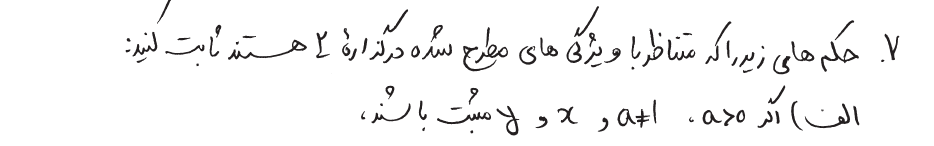 ۷. حکم های زیر را که متناظر با ویژگی های مطرح شده در گزارهٔ ۴ هستند ثابت کنید:
الف) اگر a>0، a≠1 و x و y مثبت باشند،